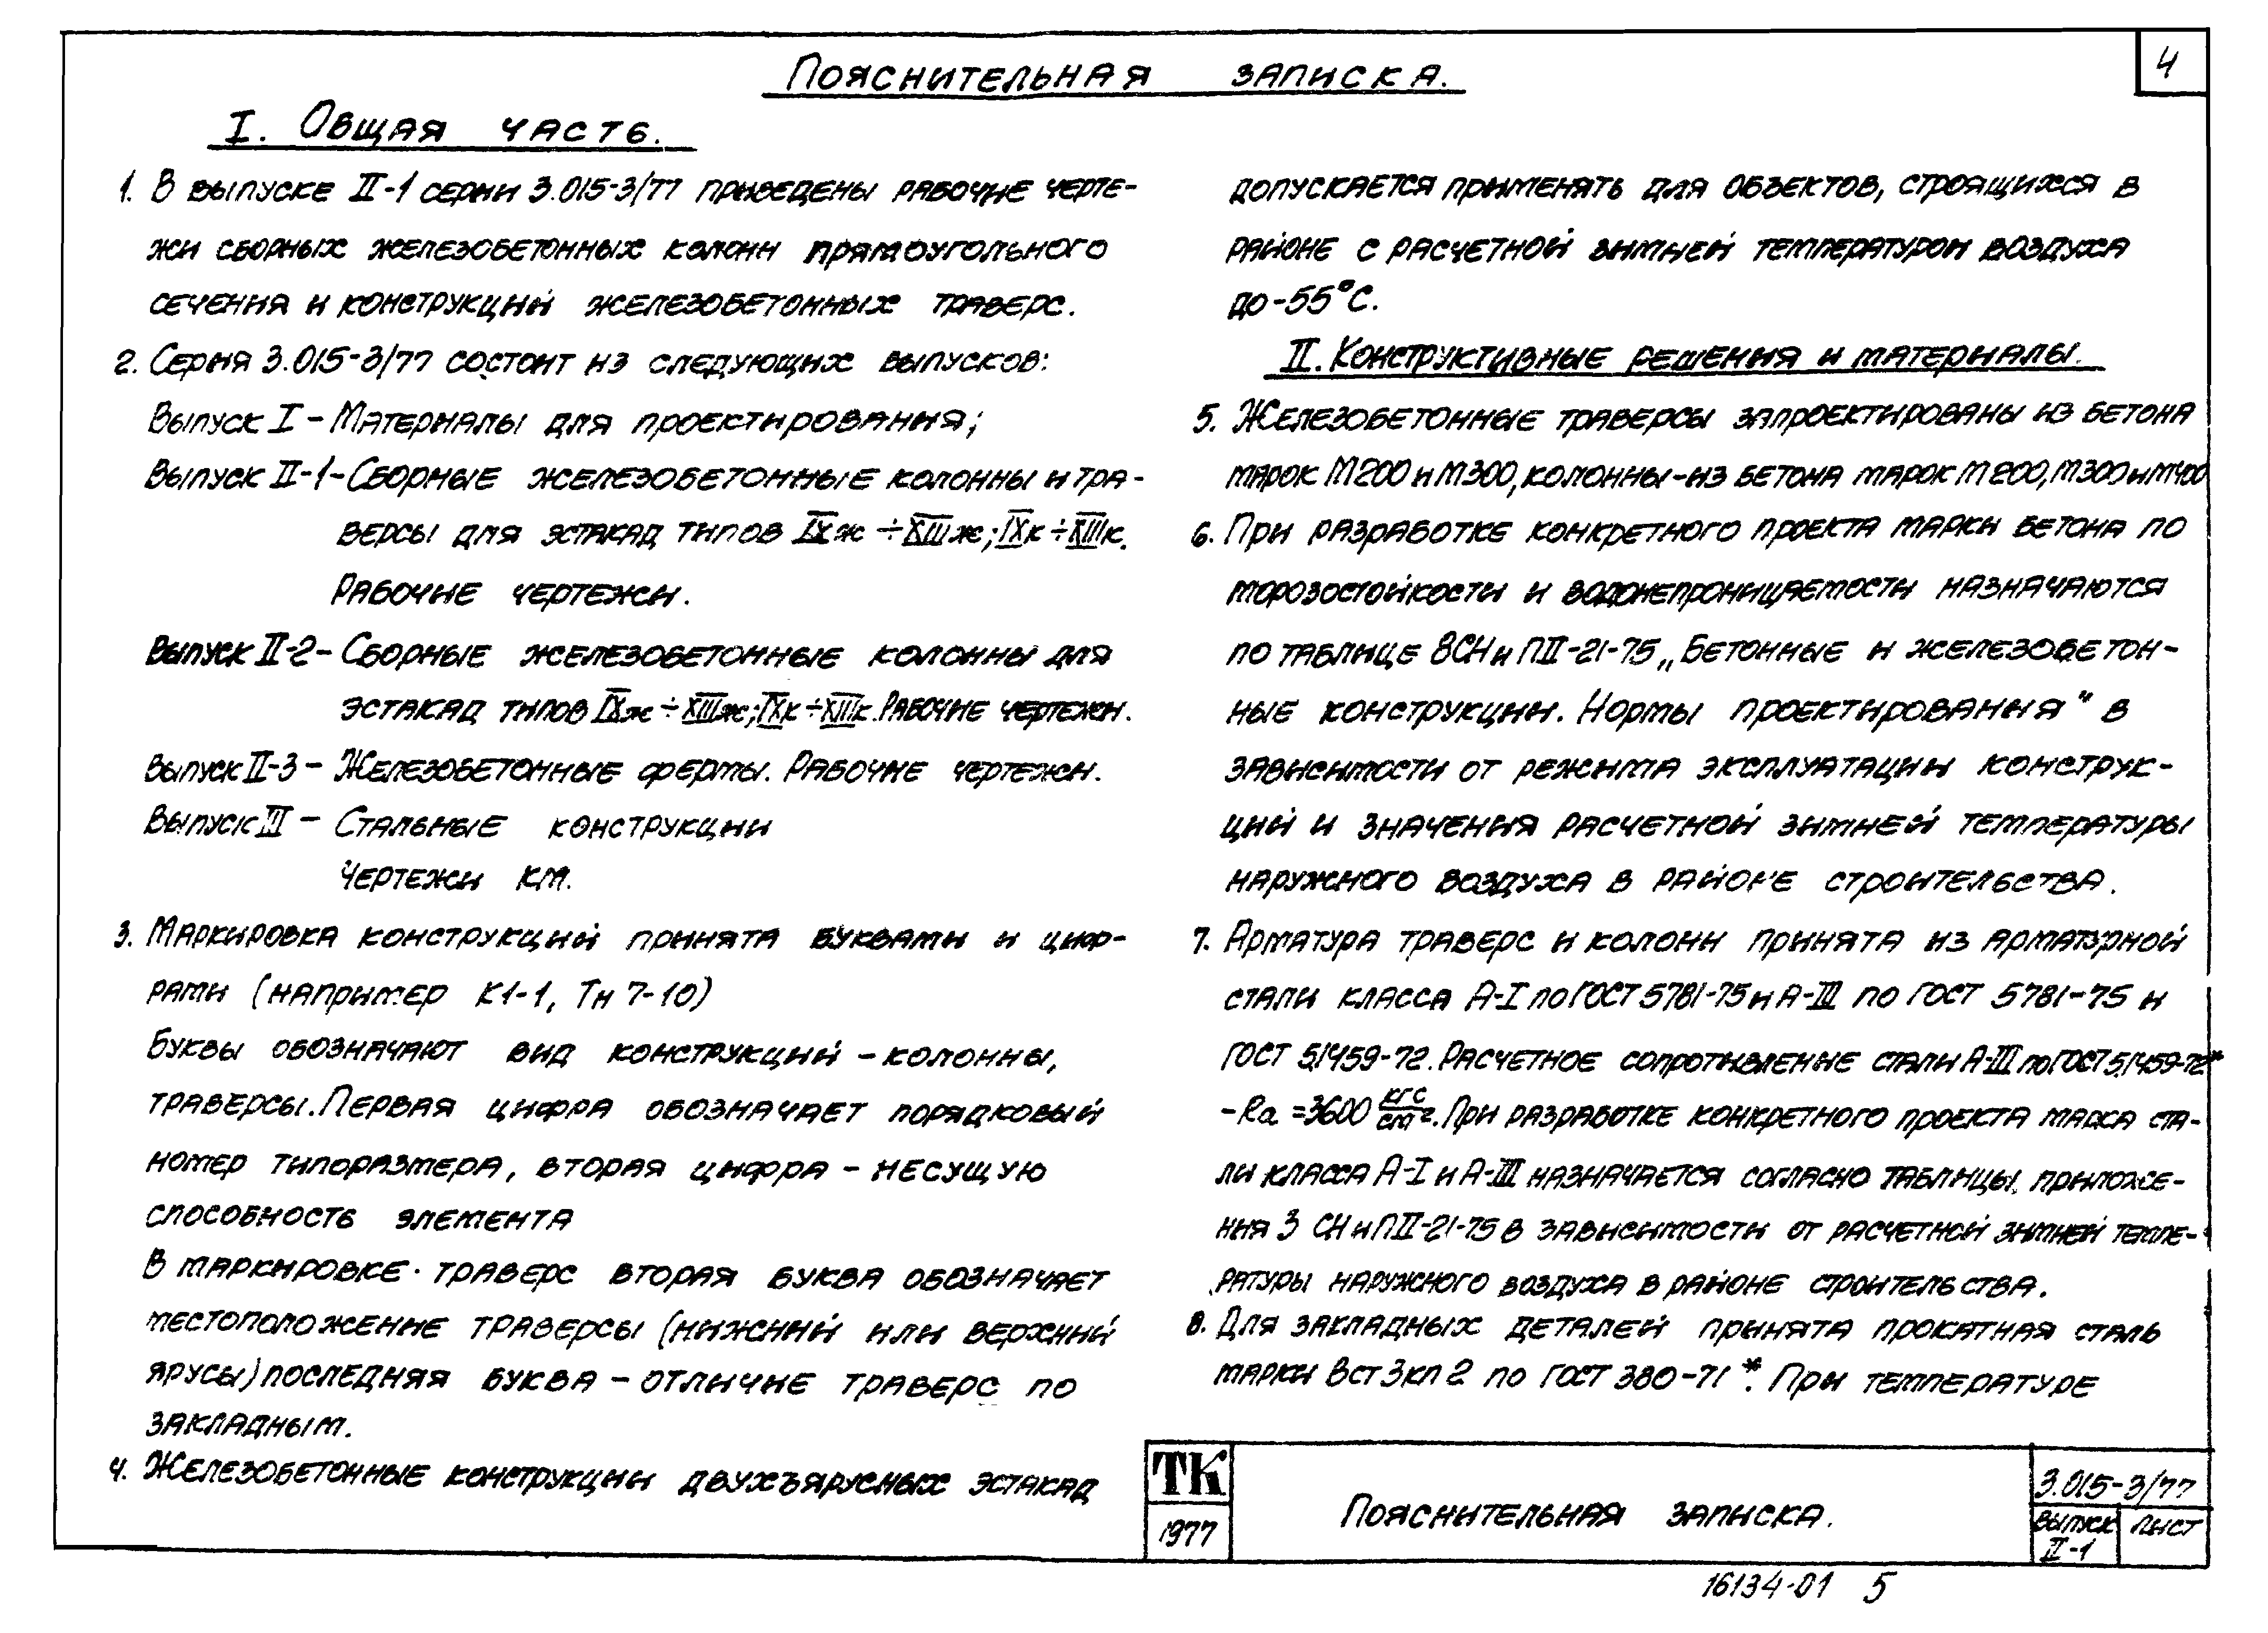 4
Пояснительная записка.
I. Общая часть.
1. В выпуске II-1 серии 3.015-3/77 приведены рабочие черте-
жи сборных железобетонных колонн прямоугольного
сечения и конструкций железобетонных траверс.
2. Серия 3.015-3/77 состоит из следующих выпусков:
Выпуск I - Материалы для проектирования;
Выпуск II-1 - Сборные железобетонные колонны и тра-
версы для эстакад типов IXж ÷ XIIIж; IXк ÷ XIIIк.
Рабочие чертежи.
Выпуск II-2 - Сборные железобетонные колонны для
эстакад типов IXж ÷ XIIIж; IXк ÷ XIIIк. Рабочие чертежи.
Выпуск II-3 - Железобетонные фермы. Рабочие чертежи.
Выпуск III - Стальные конструкции
Чертежи КМ.
3. Маркировка конструкций принята буквами и циф-
рами (например К1-1, Тн 7-10)
Буквы обозначают вид конструкций - колонны,
траверсы. Первая цифра обозначает порядковый
номер типоразмера, вторая цифра - несущую
способность элемента
В маркировке траверс вторая буква обозначает
местоположение траверсы (нижний или верхний
ярусы) последняя буква - отличие траверс по
закладным.
4. Железобетонные конструкции двухъярусных эстакад
допускается применять для объектов, строящихся в
районе с расчетной зимней температурой воздуха
до -55°С.
II. Конструктивные решения и материалы.
5. Железобетонные траверсы запроектированы из бетона
марок М200 и М300, колонны - из бетона марок М200, М300 и М400
6. При разработке конкретного проекта марки бетона по
морозостойкости и водонепроницаемости назначаются
по таблице 8 СНиП II-21-75 „Бетонные и железобетон-
ные конструкции. Нормы проектирования" в
зависимости от режима эксплуатации конструк-
ций и значения расчетной зимней температуры
наружного воздуха в районе строительства.
7. Арматура траверс и колонн принята из арматурной
стали класса А-I по ГОСТ 5781-75 и А-III по ГОСТ 5781-75 и
ГОСТ 5.1459-72. Расчетное сопротивление стали А-III по ГОСТ 5.1459-72*
- Ra = 3600 кгс/см². При разработке конкретного проекта марка ста-
ли класса А-I и А-III назначается согласно таблицы, приложе-
ния 3 СНиП II-21-75 в зависимости от расчетной зимней темпе-
ратуры наружного воздуха в районе строительства.
8. Для закладных деталей принята прокатная сталь
марки ВСт3кп2 по ГОСТ 380-71*. При температуре
ТК
1977
Пояснительная записка.
3.015-3/77
Выпуск
II-1
Лист
16134-01 5